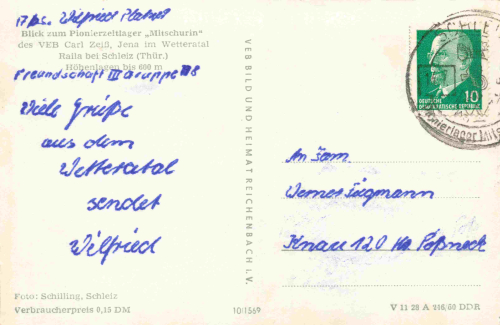 Wilfried
Blick zum Pionierzeltlager „Mitschurin"
des VEB Carl Zeiß, Jena im Wetteratal
Raila bei Schleiz (Thür.)
Höhenlagen bis 600 m
Freundschaft III Gruppe 8
Viele Grüße
aus dem
Wetteratal
sendet
Wilfried
Foto: Schilling, Schleiz
Verbraucherpreis 0,15 DM
VEB BILD UND HEIMAT REICHENBACH i. V.
10/1569
10
DEUTSCHE
DEMOKRATISCHE REPUBLIK
An Fam.
Werner
Knau 120 Kr. Pößneck
V 11 28 A 246/60 DDR